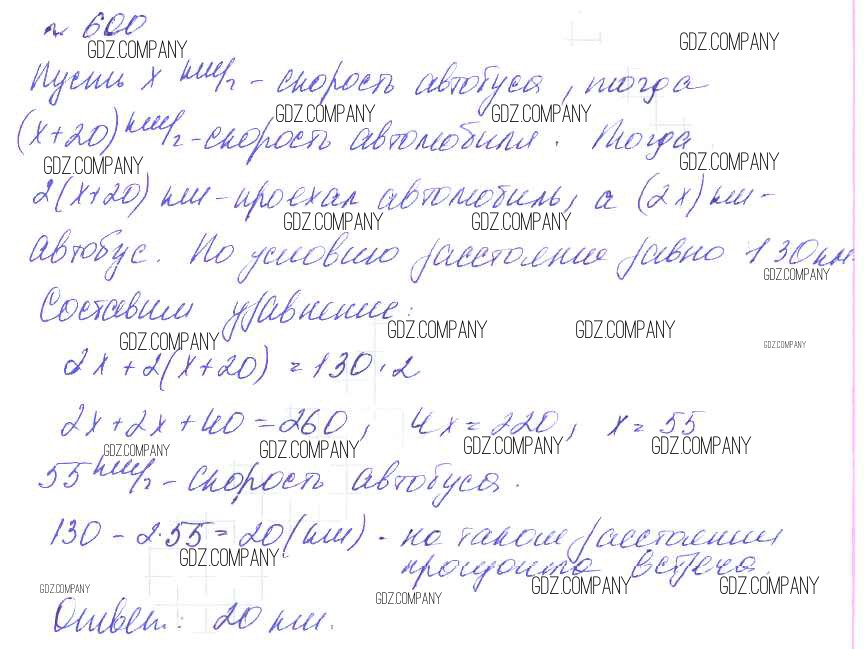 № 600
GDZ.COMPANY
GDZ.COMPANY
Пусть x км/г - скорость автобуса, тогда
GDZ.COMPANY GDZ.COMPANY
(x+20) км/г - скорость автомобиля. Тогда
GDZ.COMPANY GDZ.COMPANY
2(x+20) км - проехал автомобиль, а (2x) км -
GDZ.COMPANY GDZ.COMPANY
автобус. По условию расстояние равно 130 км.
GDZ.COMPANY
Составим уравнение:
GDZ.COMPANY GDZ.COMPANY GDZ.COMPANY GDZ.COMPANY
2x + 2(x+20) = 130 · 2
2x + 2x + 40 = 260, 4x = 220, x = 55
GDZ.COMPANY GDZ.COMPANY GDZ.COMPANY GDZ.COMPANY
55 км/г - скорость автобуса.
130 - 2·55 = 20 (км) - на таком расстоянии
GDZ.COMPANY
произойдёт встреча.
GDZ.COMPANY GDZ.COMPANY GDZ.COMPANY GDZ.COMPANY
Ответ: 20 км.